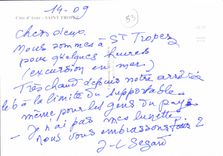 14-09
Chers deux.
Nous sommes à St Tropez
pour quelques heures
(excursion en mer).
Très chaud depuis notre arrivée
à la limite du supportable
même pour les gens du pays
- Je n'ai pas mes lunettes.
nous vous embrassons tous 2
J-L Segard